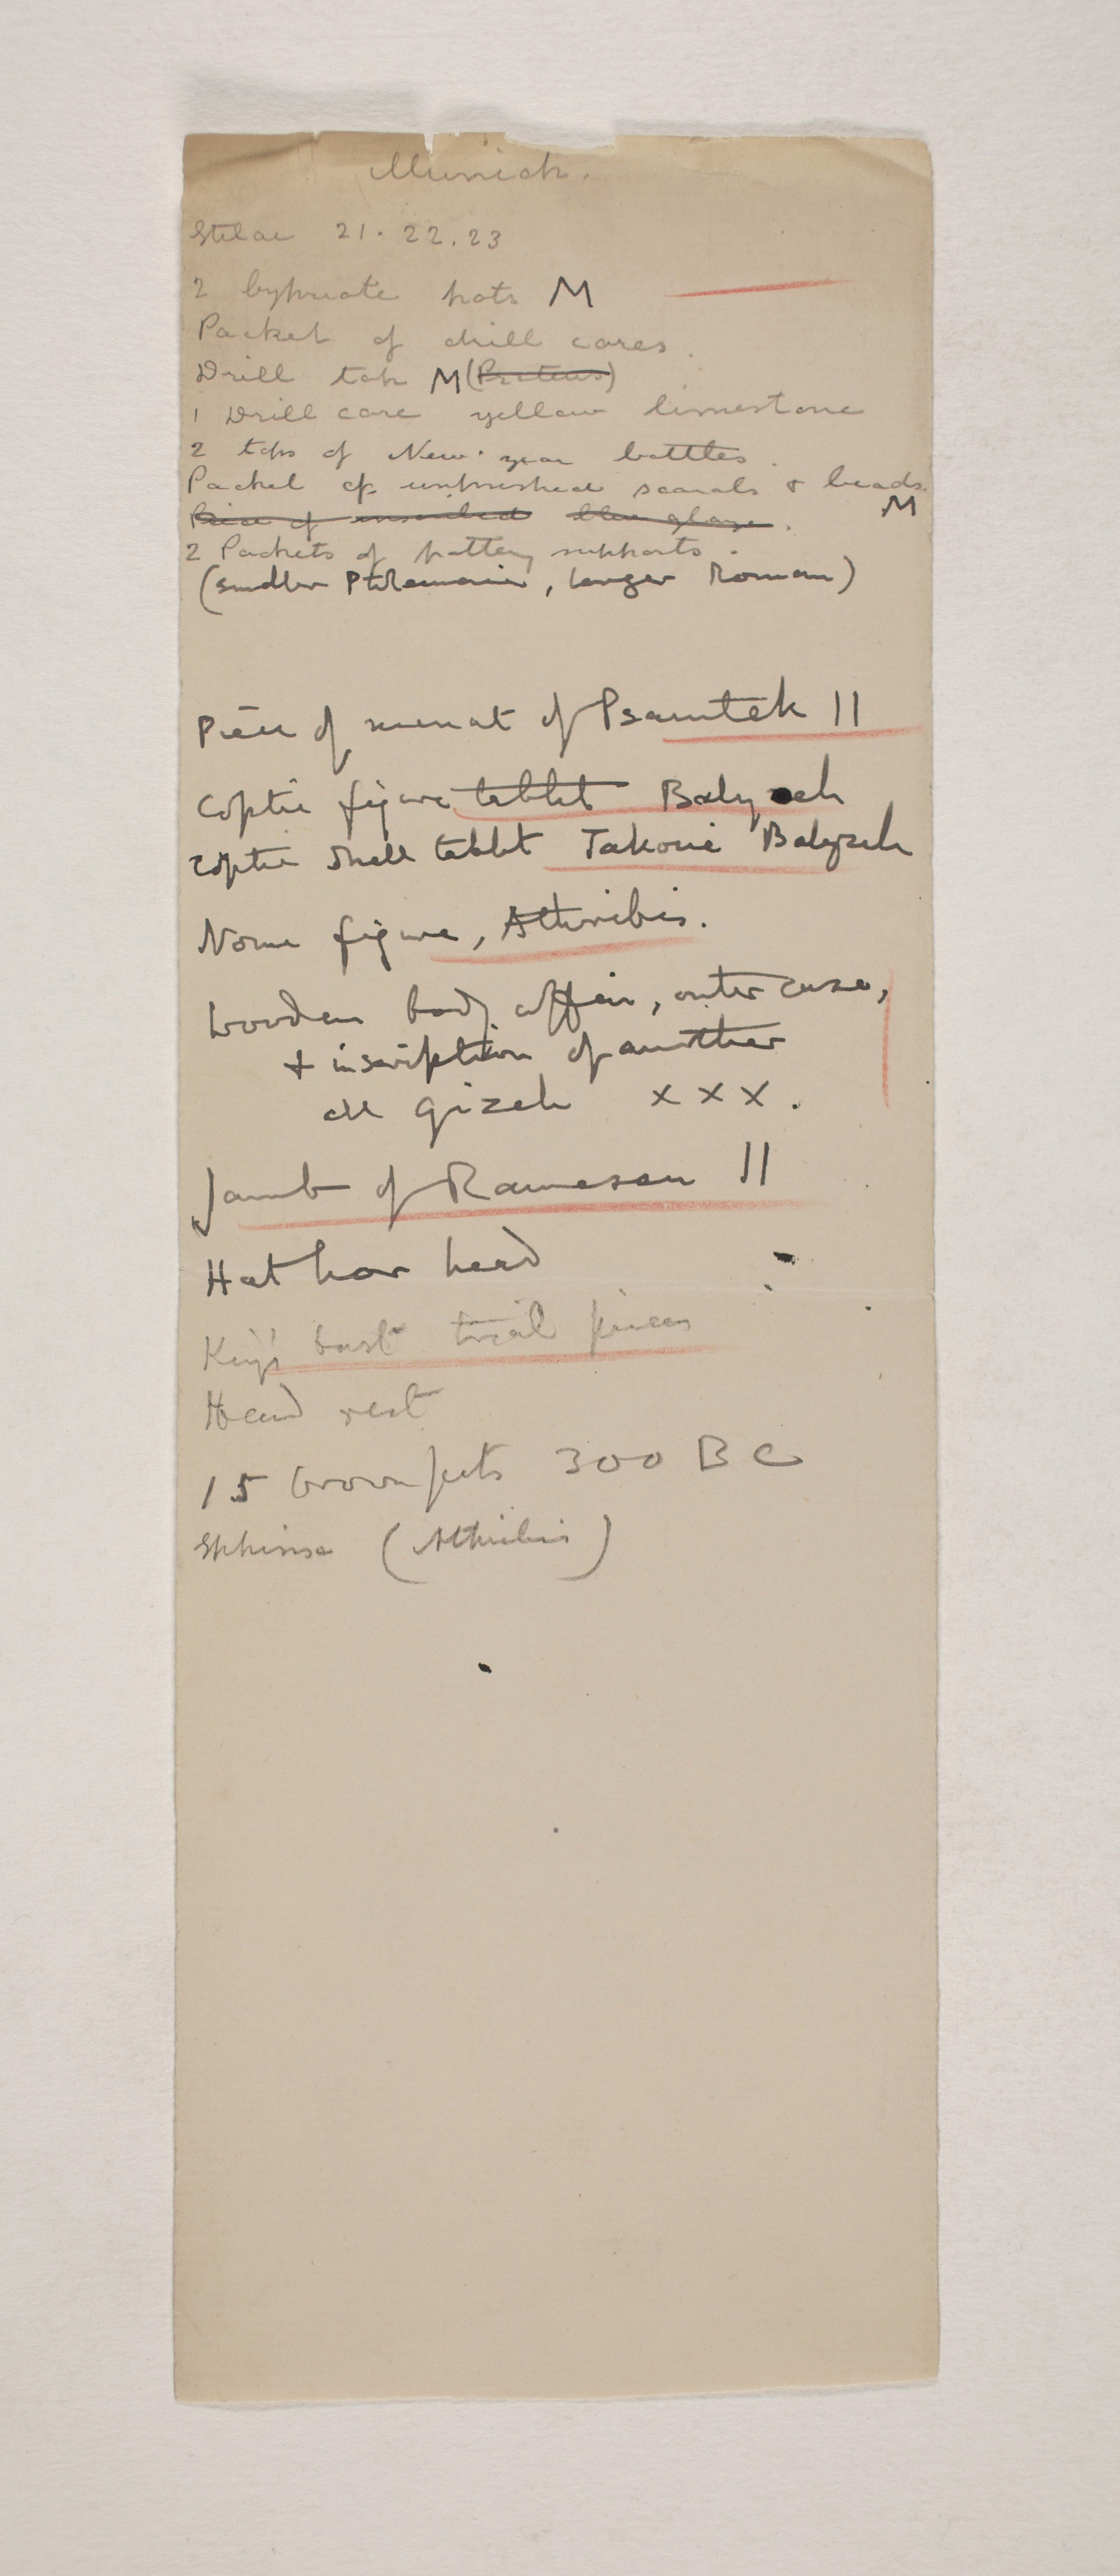 Munich.
Stelae 21. 22. 23
2 bifurcate pots M
Packet of drill cores.
Drill top M
1 Drill core yellow limestone
2 tops of New year bottles.
Packet of unfinished scarabs & beads.
Piece of inscribed blue glaze. M
2 Packets of pottery supports.
(smaller Ptolemaic, larger Roman)
Piece of menat of Psamtek II
Coptic figure tablet Balyzeh
Coptic shell tablet Balyzeh
Nome figure, Athribis.
Wooden body coffin, outer case,
+ inscription of another
all Gizeh x x x.
Jamb of Ramessu II
Hathor head
King's bust trial pieces
Head rest
15 brown pots 300 BC
Sphinx (Athribis)